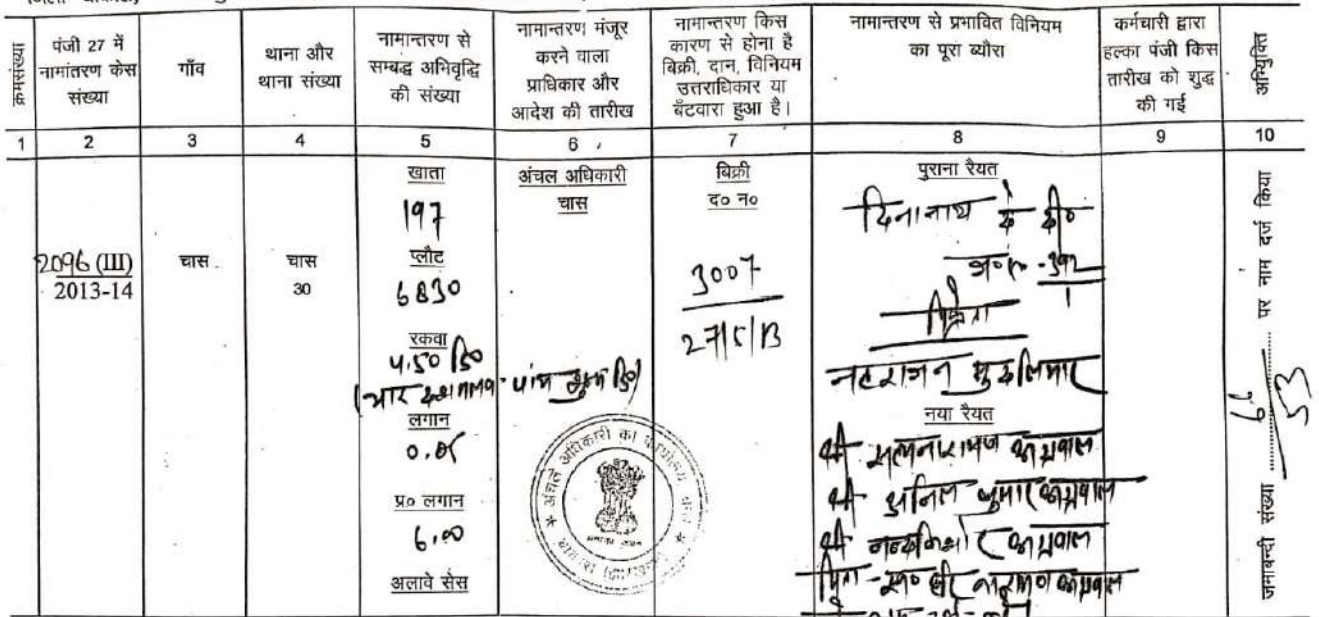 क्रमसंख्या
पंजी 27 में नामांतरण केस संख्या
गाँव
थाना और थाना संख्या
नामान्तरण से सम्बद्ध अभिवृद्धि की संख्या
नामान्तरण मंजूर करने वाला प्राधिकार और आदेश की तारीख
नामान्तरण किस कारण से होना है बिक्री, दान, विनियम उत्तराधिकार या बँटवारा हुआ है।
नामान्तरण से प्रभावित विनियम का पूरा ब्यौरा
कर्मचारी द्वारा हल्का पंजी किस तारीख को शुद्ध की गई
अभियुक्ति
1 2 3 4 5 6 7 8 9 10
2096 (III)
2013-14
चास
चास
30
खाता
197
प्लौट
6830
रकवा
4.50 डि०
लगान
प्र० लगान
6.00
अलावे सेस
अंचल अधिकारी
चास
बिक्री
द० न०
3007
27/5/13
पुराना रैयत
दिनानाथ के बी०
विक्रेता
नटराजन मुदलियार
नया रैयत
श्री सत्यनारायण अग्रवाल
श्री अनिल कुमार अग्रवाल
श्री नन्दकिशोर अग्रवाल
पिता - स्व०
जमाबन्दी संख्या
पर नाम दर्ज किया